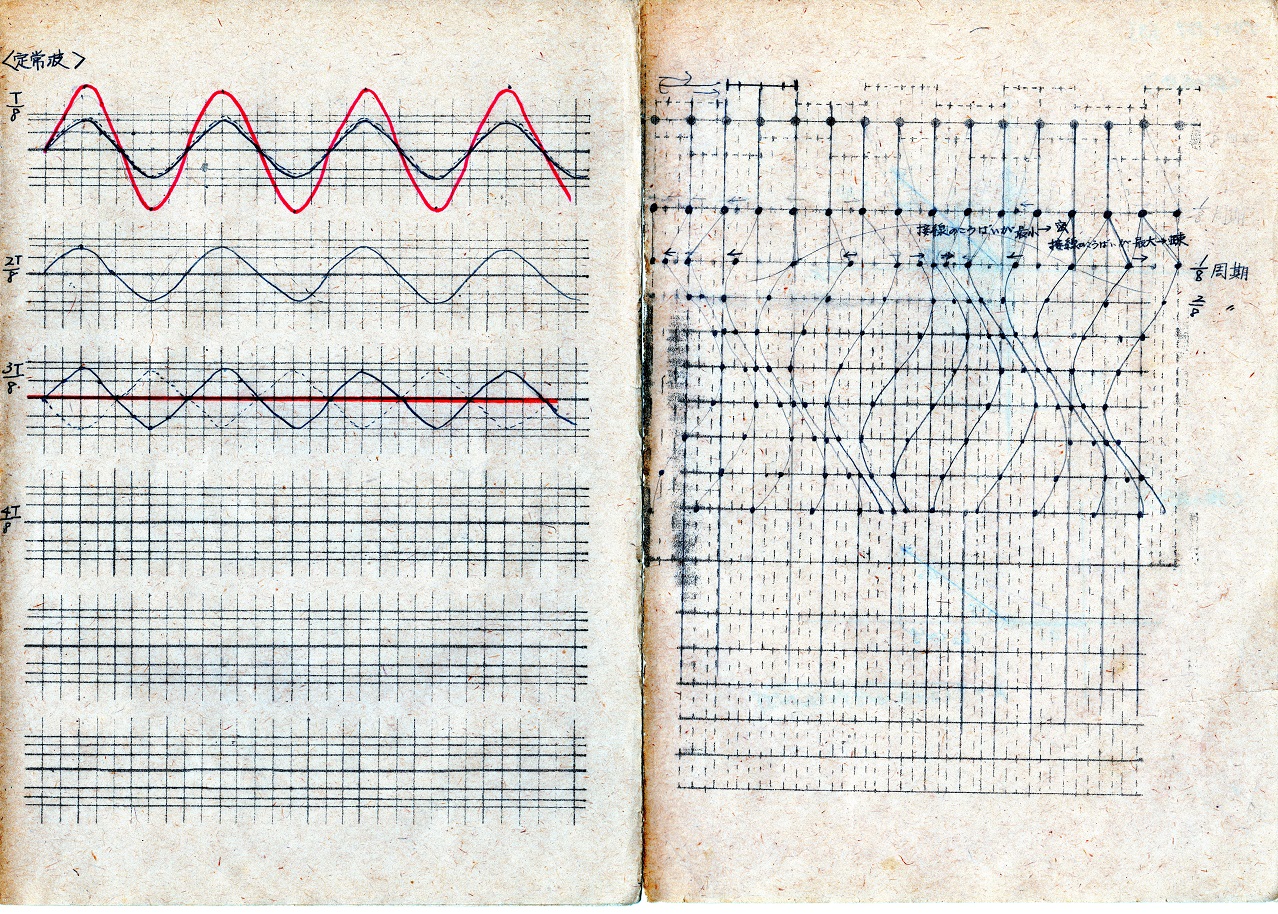 〈定常波〉
T/8
2T/8
3T/8
4T/8
接線のこうばいが最小→密
接線のこうばいが最大→疎
1/8周期
2/8 〃